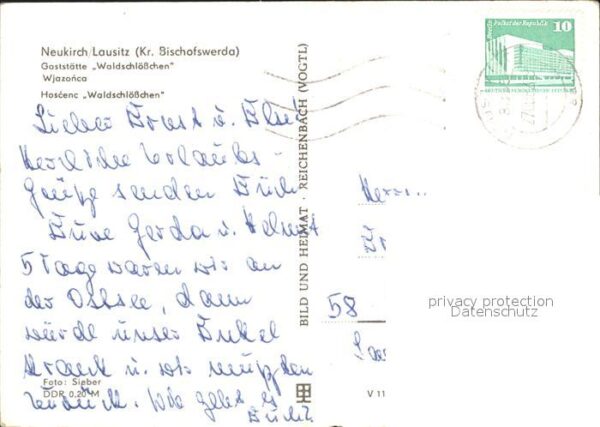 Neukirch/Lausitz (Kr. Bischofswerda)
Gaststätte „Waldschlößchen“
Wjazońca
Hosćenc „Waldschlößchen“
Lieber Ernst u.
Herzliche Urlaubs-
grüße senden Euch
Eure Gerda u. Helmut
5 Tage waren wir an
der Ostsee, dann
wurde unser Enkel
krank u. wir mußten
zurück. Wie geht es
Euch?
Foto: Sieber
DDR 0,20 M
BILD UND HEIMAT · REICHENBACH (VOGTL)
V 11
Palast der Republik
10
Herrn
58
privacy protection
Datenschutz